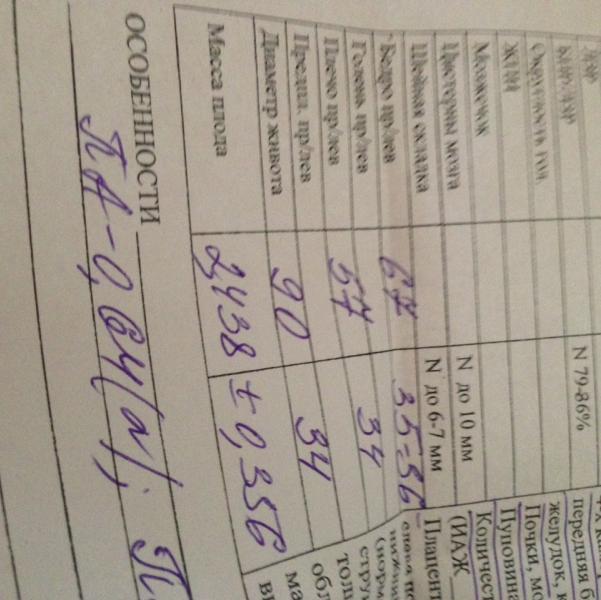 ЛЗР
БПР/ЛЗР N 79-86%
Окружность гол.
ЖПП
Мозжечок
Цистерны мозга N до 10 мм
Шейная складка N до 6-7 мм
Бедро пр/лев 67 35-36
Голень пр/лев
Плечо пр/лев 57 34
Предпл. пр/лев
Диаметр живота 90 34
Масса плода 2,438 ± 0,356
ОСОБЕННОСТИ
ПА-0,64(N);
передняя б
желудок, к
Почки, мо
Пуповина
Количест
(ИАЖ
Плацент
нижни
(норм
стру
тол
обл
ма